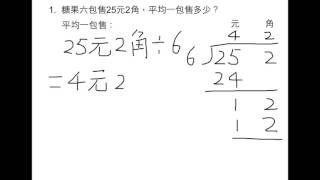 1. 糖果六包售25元2角，平均一包售多少？
平均一包售：
元 角
4 2
25元2角÷6
6 25 2
=4元2
24
1 2
1 2